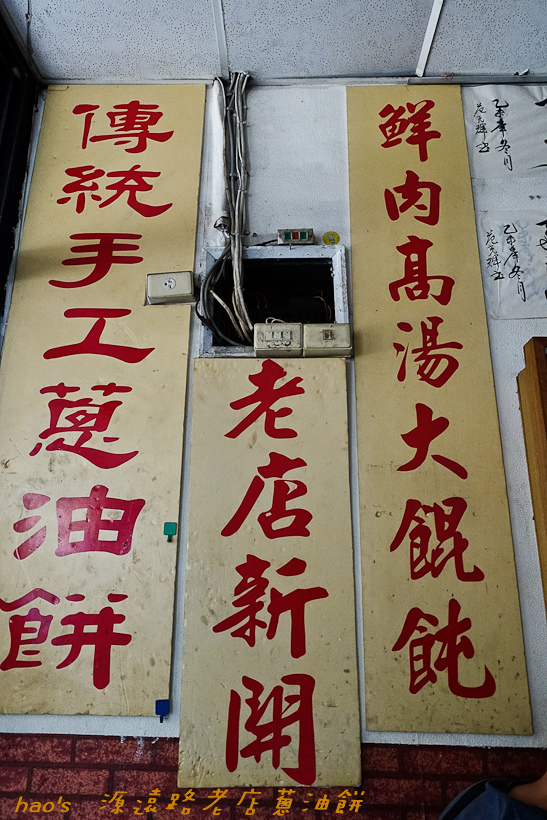 鮮肉高湯大餛飩
老店新開
傳統手工蔥油餅
乙未年冬月
乙未年冬月
hao's 源遠路老店蔥油餅